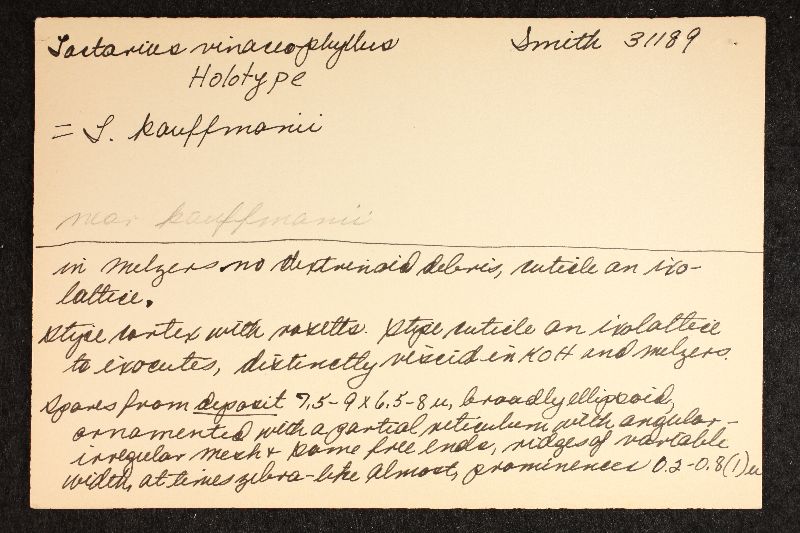 Lactarius vinaceophyllus Smith 31189
Holotype
= L. kauffmanii
near kauffmanii
in Melzers no dextrinoid debris, cuticle an ixo-
lattice.
Stipe cortex with rosetts. Stipe cuticle an ixolattice
to ixocutes, distinctly viscid in KOH and Melzers.
Spores from deposit 7.5-9 x 6.5-8 u, broadly ellipsoid,
ornamented with a partial reticulum with angular-
irregular mesh & some free ends, ridges of variable
width, at times zebra-like almost, prominences 0.2-0.8(1) u